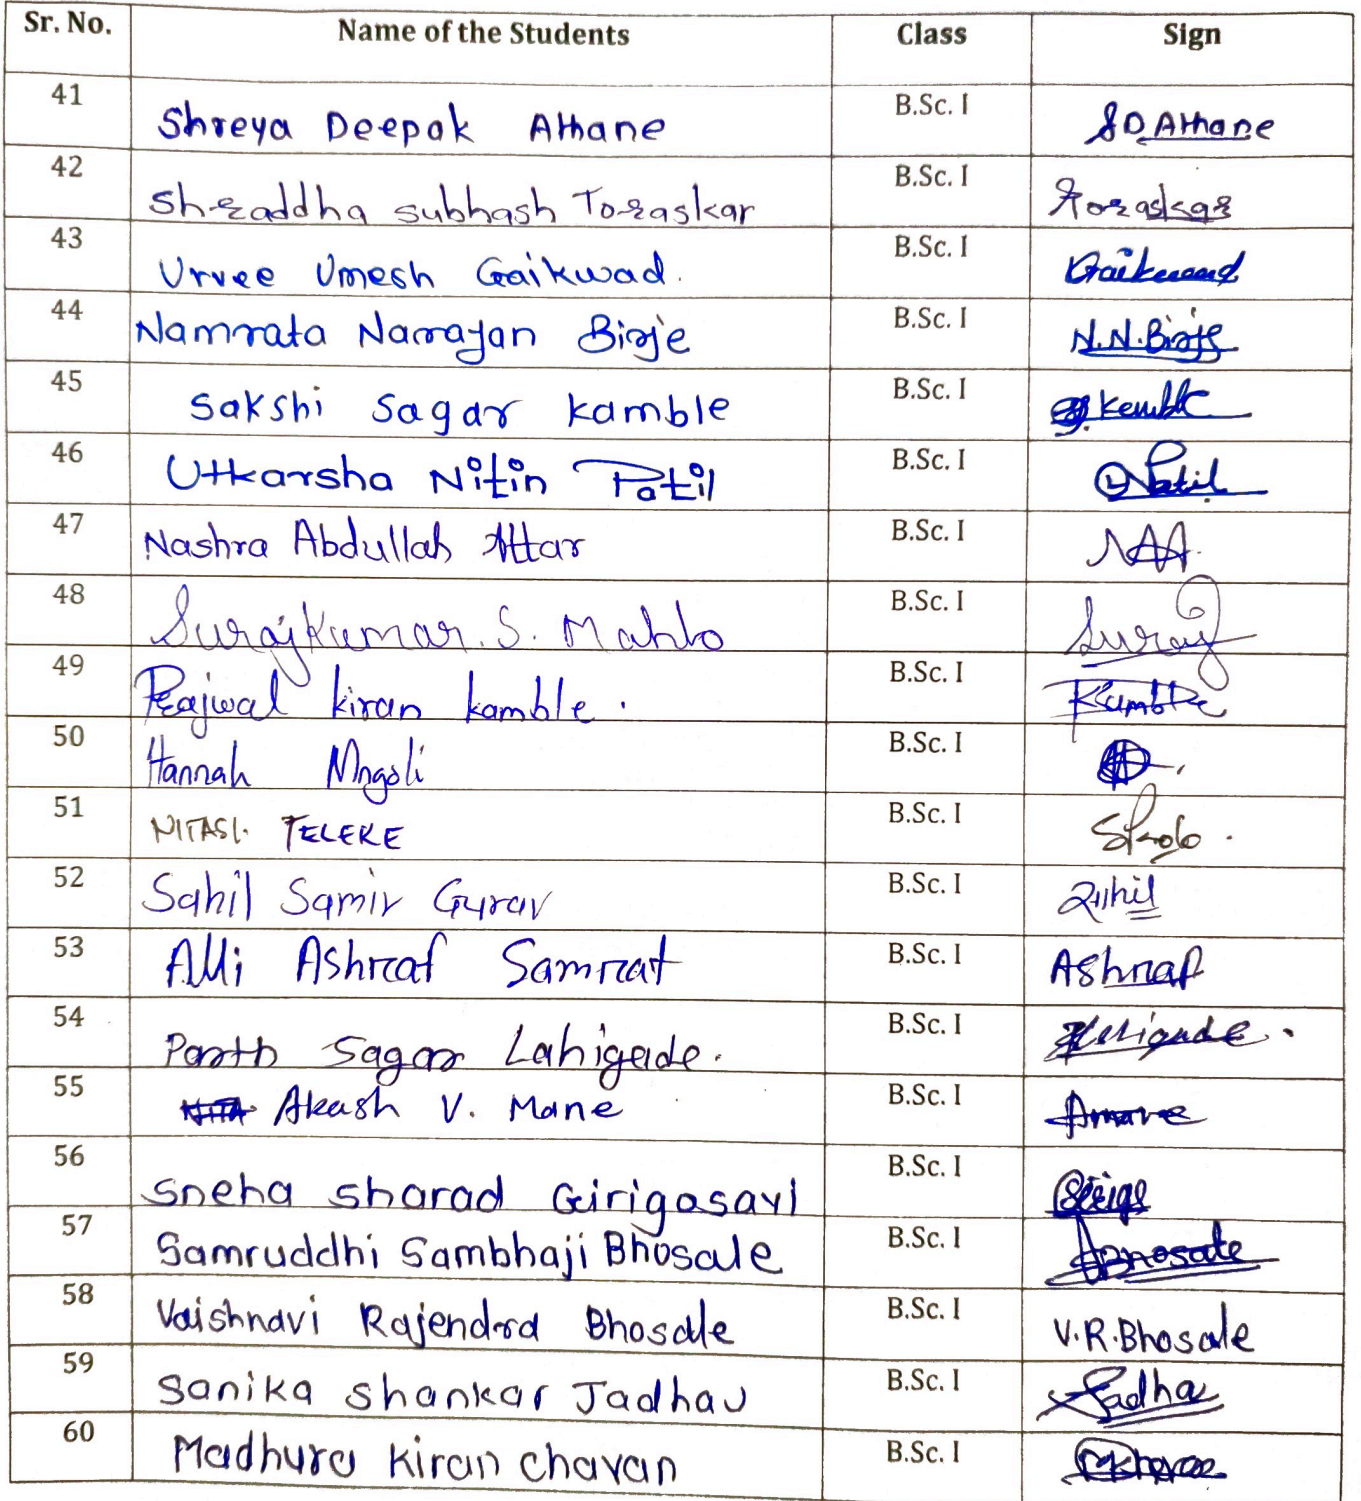 Sr. No. Name of the Students Class Sign
41 Shreya Deepak Athane B.Sc. I S D Athane
42 Shraddha Subhash Toraskar B.Sc. I Toraskar
43 Urvee Umesh Gaikwad. B.Sc. I Gaikwad
44 Namrata Narayan Birje B.Sc. I N.N.Birje
45 Sakshi Sagar Kamble B.Sc. I Kamble
46 Utkarsha Nitin Patil B.Sc. I Patil
47 Nashra Abdullah Attar B.Sc. I NAA.
48 Surajkumar. S. Mahto B.Sc. I Suraj
49 Prajwal kiran kamble. B.Sc. I Kamble
50 Hannah B.Sc. I
51 TELEKE B.Sc. I
52 Sahil Samir Gurav B.Sc. I Sahil
53 Alli Ashraf Samrat B.Sc. I Ashraf
54 Parth Sagar Lahigade. B.Sc. I
55 Akash V. Mane B.Sc. I Amane
56 Sneha Sharad Girigosavi B.Sc. I
57 Samruddhi Sambhaji Bhosale B.Sc. I Bhosale
58 Vaishnavi Rajendra Bhosale B.Sc. I V.R.Bhosale
59 Sanika Shankar Jadhav B.Sc. I Jadhav
60 Madhura Kiran Chavan B.Sc. I